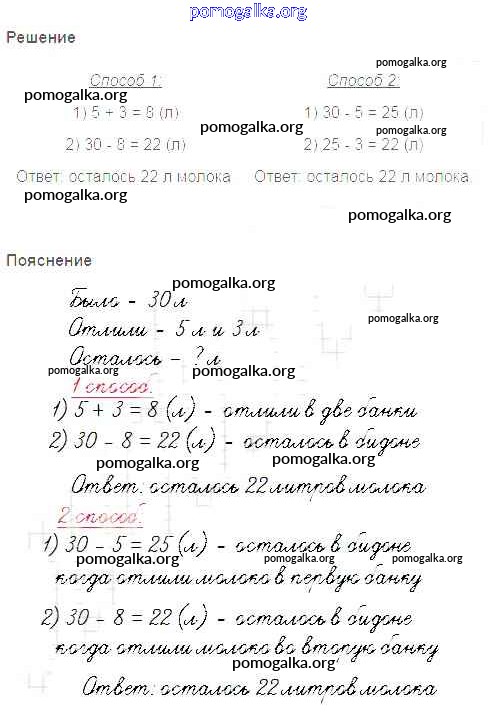 pomogalka.org
Решение
pomogalka.org
Способ 1: Способ 2:
pomogalka.org
1) 5 + 3 = 8 (л) 1) 30 - 5 = 25 (л)
pomogalka.org pomogalka.org
2) 30 - 8 = 22 (л) 2) 25 - 3 = 22 (л)
Ответ: осталось 22 л молока. Ответ: осталось 22 л молока.
pomogalka.org
pomogalka.org
Пояснение
pomogalka.org
Было - 30 л
pomogalka.org
Отлили - 5 л и 3 л
Осталось - ? л
pomogalka.org pomogalka.org
1 способ:
1) 5 + 3 = 8 (л) - отлили в две банки
2) 30 - 8 = 22 (л) - осталось в бидоне
pomogalka.org pomogalka.org
Ответ: осталось 22 литров молока
2 способ:
1) 30 - 5 = 25 (л) - осталось в бидоне
pomogalka.org pomogalka.org pomogalka.org
когда отлили молоко в первую банку
2) 30 - 8 = 22 (л) - осталось в бидоне
когда отлили молоко во вторую банку
pomogalka.org
Ответ: осталось 22 литров молока